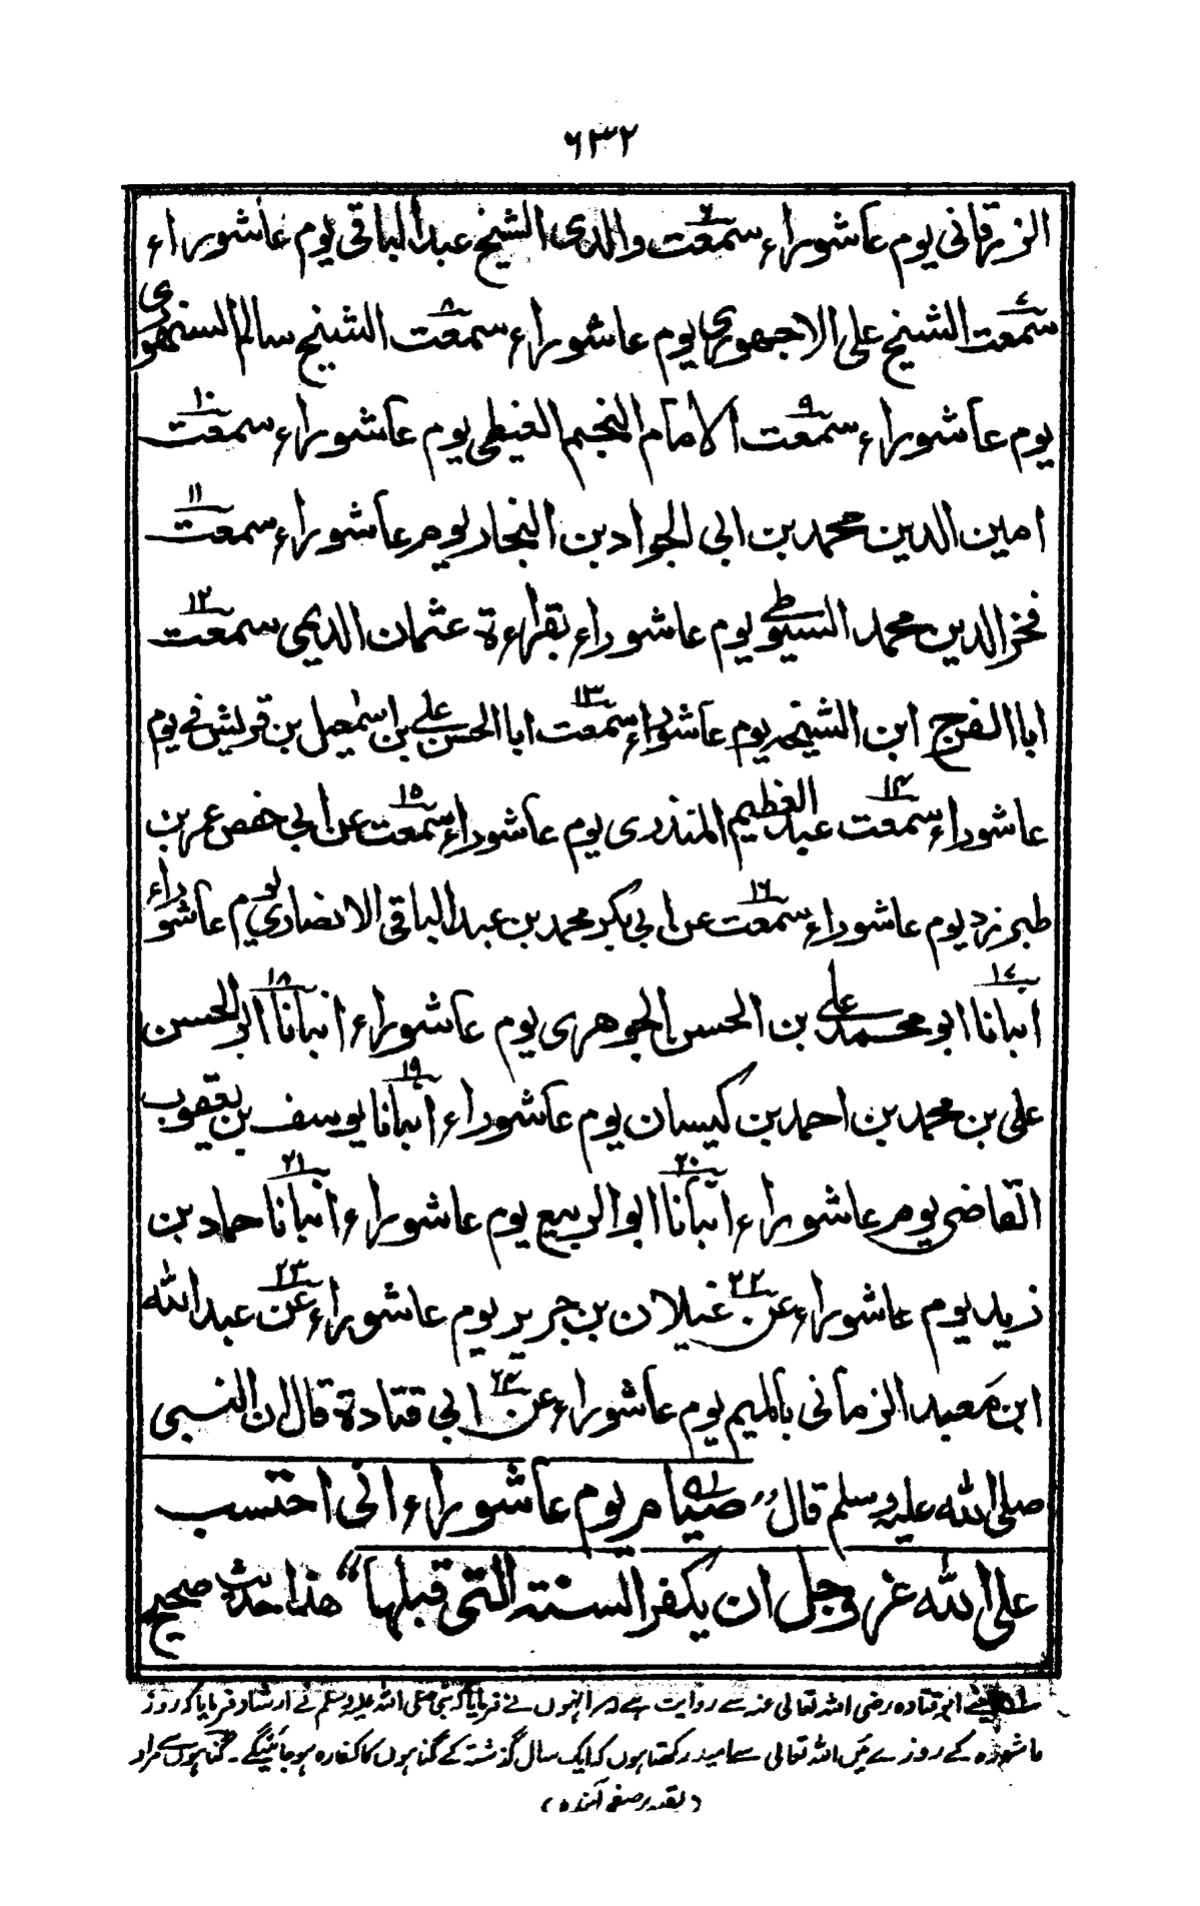 ٦٣٢
الزرقانی یوم عاشوراء سمعت والدی الشیخ عبدالباقی یوم عاشوراء
سمعت الشیخ علی الاجھوری یوم عاشوراء سمعت الشیخ سالم السنھوری
یوم عاشوراء سمعت الامام النجم الغیطی یوم عاشوراء سمعت
امین الدین محمد بن ابی الجواد بن النجار یوم عاشوراء سمعت
فخر الدین محمد السیوطی یوم عاشوراء بقراءة عثمان الدیمی سمعت
ابا الفرج ابن الشیخہ یوم عاشوراء سمعت ابا الحسن علی بن اسمٰعیل بن قریش فی یوم
عاشوراء سمعت عبد العظیم المنذری یوم عاشوراء سمعت عن ابی حفص عمر بن
طبرزد یوم عاشوراء سمعت عن ابی بکر محمد بن عبد الباقی الانصاری یوم عاشوراء
انبانا ابو محمد علی بن الحسن الجوھری یوم عاشوراء انبانا ابو الحسن
علی بن محمد بن احمد بن کیسان یوم عاشوراء انبانا یوسف بن یعقوب
القاضی یوم عاشوراء انبانا ابو الربیع یوم عاشوراء انبانا حماد بن
زید یوم عاشوراء عن غیلان بن جریر یوم عاشوراء عن عبد اللہ
ابن معبد الزمانی بالمیم یوم عاشوراء عن ابی قتادة قال ان النبی
صلی اللہ علیہ وسلم قال ”صیام یوم عاشوراء انی احتسب
علی اللہ عز وجل ان یکفر السنة التی قبلھا“ ھذا حدیث صحیح
ابو قتادہ رضی اللہ تعالی عنہ سے روایت ہے انہوں نے فرمایا کہ نبی صلی اللہ علیہ وسلم نے ارشاد فرمایا کہ روز
عاشورہ کے روزے میں اللہ تعالی سے امید رکھتا ہوں کہ ایک سال گذشتہ کے گناہوں کا کفارہ ہو جائینگے۔ گناہوں سے مراد
(بقیہ بر صفحہ آئندہ)